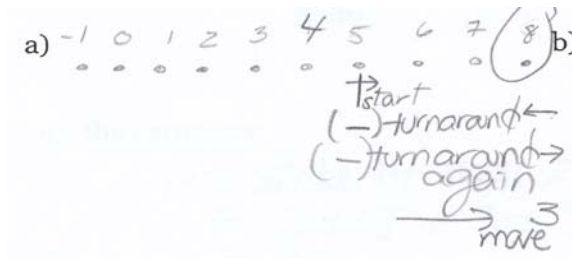 a) -1 0 1 2 3 4 5 6 7 8 b)
start
(-) turnaround ←
(-) turnaround →
again
→ move 3